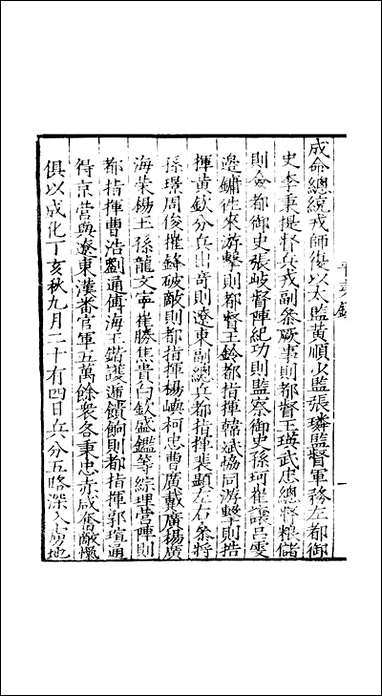 成命總統戎師復以太監黃順少監張璘監督軍務左都御
史李秉提督兵戎副叅厥事則都督王瑛武忠總督粮儲
則僉都御史張岐督陣紀功則監察御史孫珂崔讓吕雯
邀鏽徃來游擊則都督王鈴都指揮韓斌協同游擊則指
揮黃欽分兵山奇則遼東副總兵都指揮裴顕左右叅將
孫璟周俊摧鋒破敵則都指揮楊嶼柯忠曹廣戴廣揚廣
海荣楊王孫龍文寧崔勝焦貴白欽盛鑑等綜理營陣則
都指揮曹浩劉通傅海王鍇護逓饋餉則都指揮郭瑄通
得京營與遼東漢畨官軍五萬餘衆各秉忠赤咸奮敵愾
俱以成化丁亥秋九月二十有四日兵分五路深入虜地
平夷錄
一